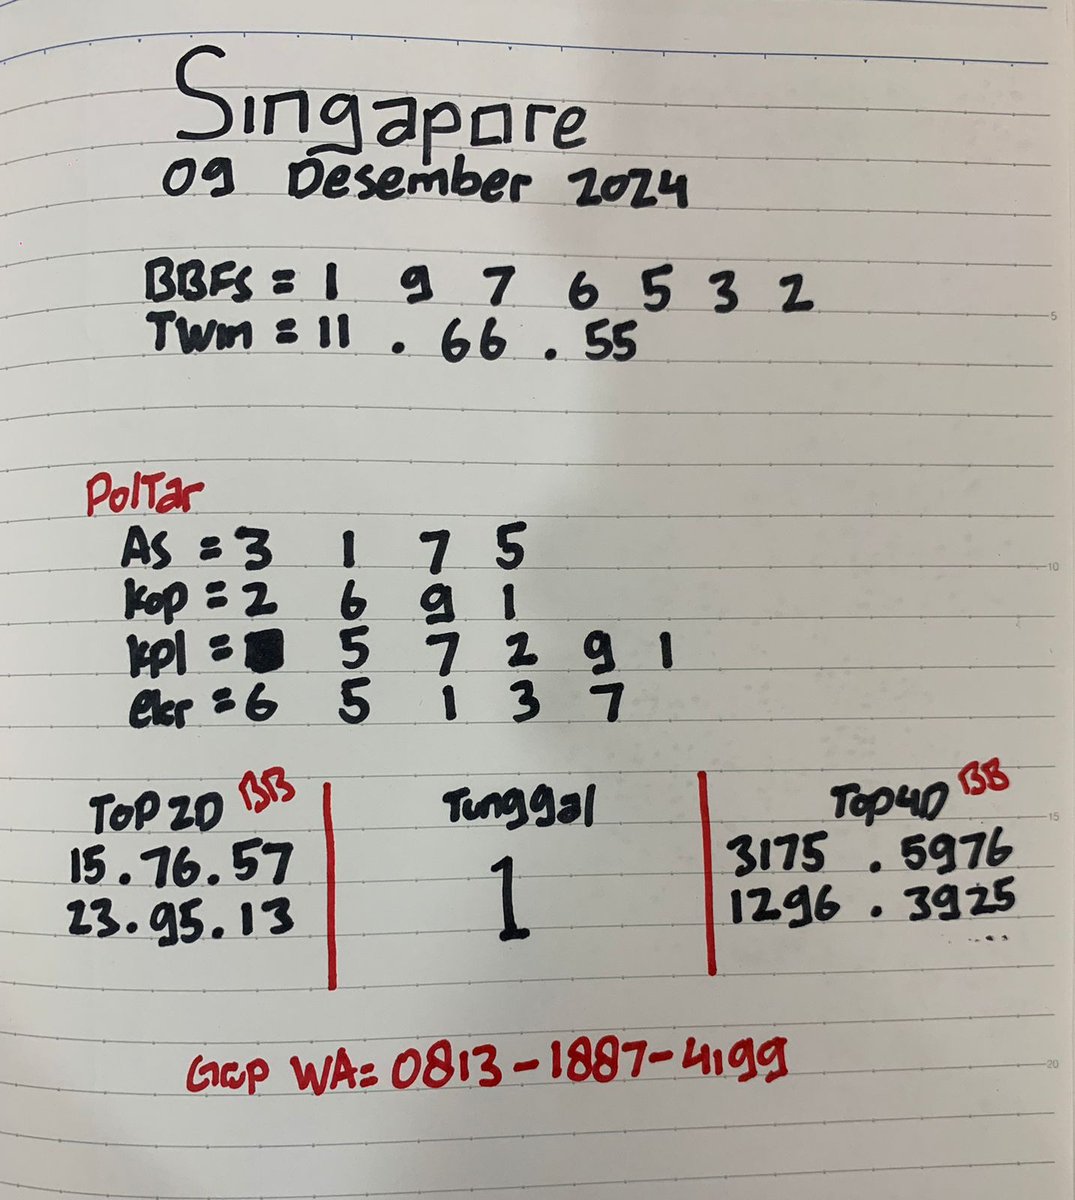 Singapore
09 Desember 2024
BBFS = 1 9 7 6 5 3 2
Twin = 11 . 66 . 55
PolTar
AS = 3 1 7 5
kop = 2 6 9 1
kpl = 5 7 2 9 1
ekr = 6 5 1 3 7
ToP 2D BB
15 . 76 . 57
23 . 95 . 13
Tunggal
1
Top4D BB
3175 . 5976
1296 . 3925
WA= 0813-1887-4199
5
10
15
20